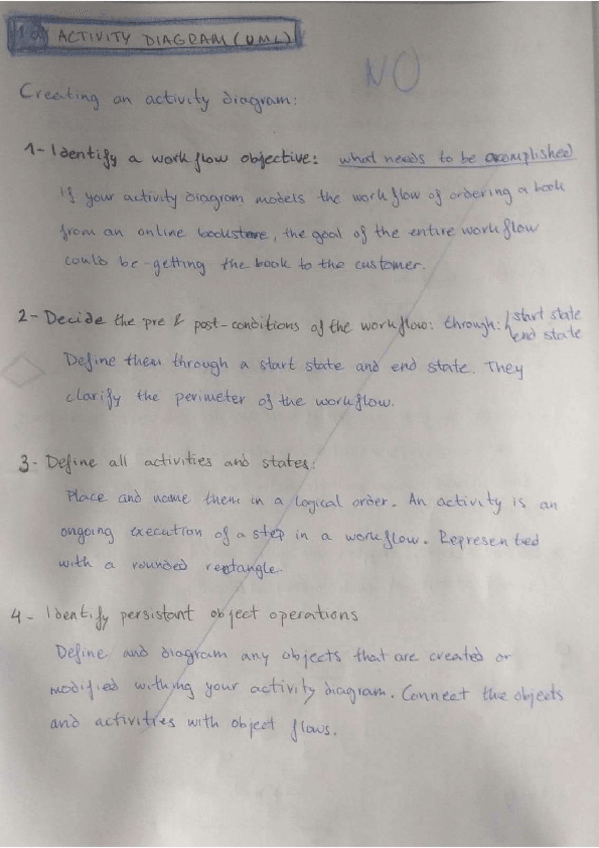 ACTIVITY DIAGRAM (UML)
NO
Creating an activity diagram:
1- Identify a workflow objective: what needs to be acomplished
If your activity diagram models the workflow of ordering a book
from an online bookstore, the goal of the entire workflow
could be getting the book to the customer.
2- Decide the pre & post-conditions of the workflow: through: start state
end state
Define them through a start state and end state. They
clarify the perimeter of the workflow.
3- Define all activities and states:
Place and name them in a logical order. An activity is an
ongoing execution of a step in a workflow. Represented
with a rounded rectangle.
4- Identify persistant object operations
Define and diagram any objects that are created or
modified withing your activity diagram. Connect the objects
and activities with object flows.